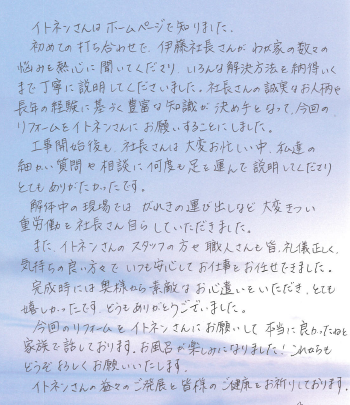 イトネンさんはホームページで知りました。
初めての打ち合わせで、伊藤社長さんが わが家の数々の
悩みを熱心に聞いてくださり、いろんな解決方法を納得いく
まで丁寧に説明してくださいました。社長さんの誠実なお人柄や
長年の経験に基づく豊富な知識が 決め手となって、今回の
リフォームをイトネンさんにお願いすることにしました。
工事開始後も、社長さんは大変お忙しい中、私達の
細かい質問や相談に何度も足を運んで説明してくださり
とてもありがたかったです。
解体中の現場では がれきの運び出しなど 大変きつい
重労働を社長さん自らしていただきました。
また、イトネンさんのスタッフの方や職人さんも皆、礼儀正しく、
気持ちの良い方々で いつも安心してお仕事をお任せできました。
完成時には奥様から素敵なお心遣いをいただき、とても
嬉しかったです。どうもありがとうございました。
今回のリフォームをイトネンさんにお願いして 本当に良かったねと
家族で話しております。お風呂が楽しみになりました！これからも
どうぞよろしくお願いいたします。
イトネンさんの益々のご発展と皆様のご健康をお祈りしております。